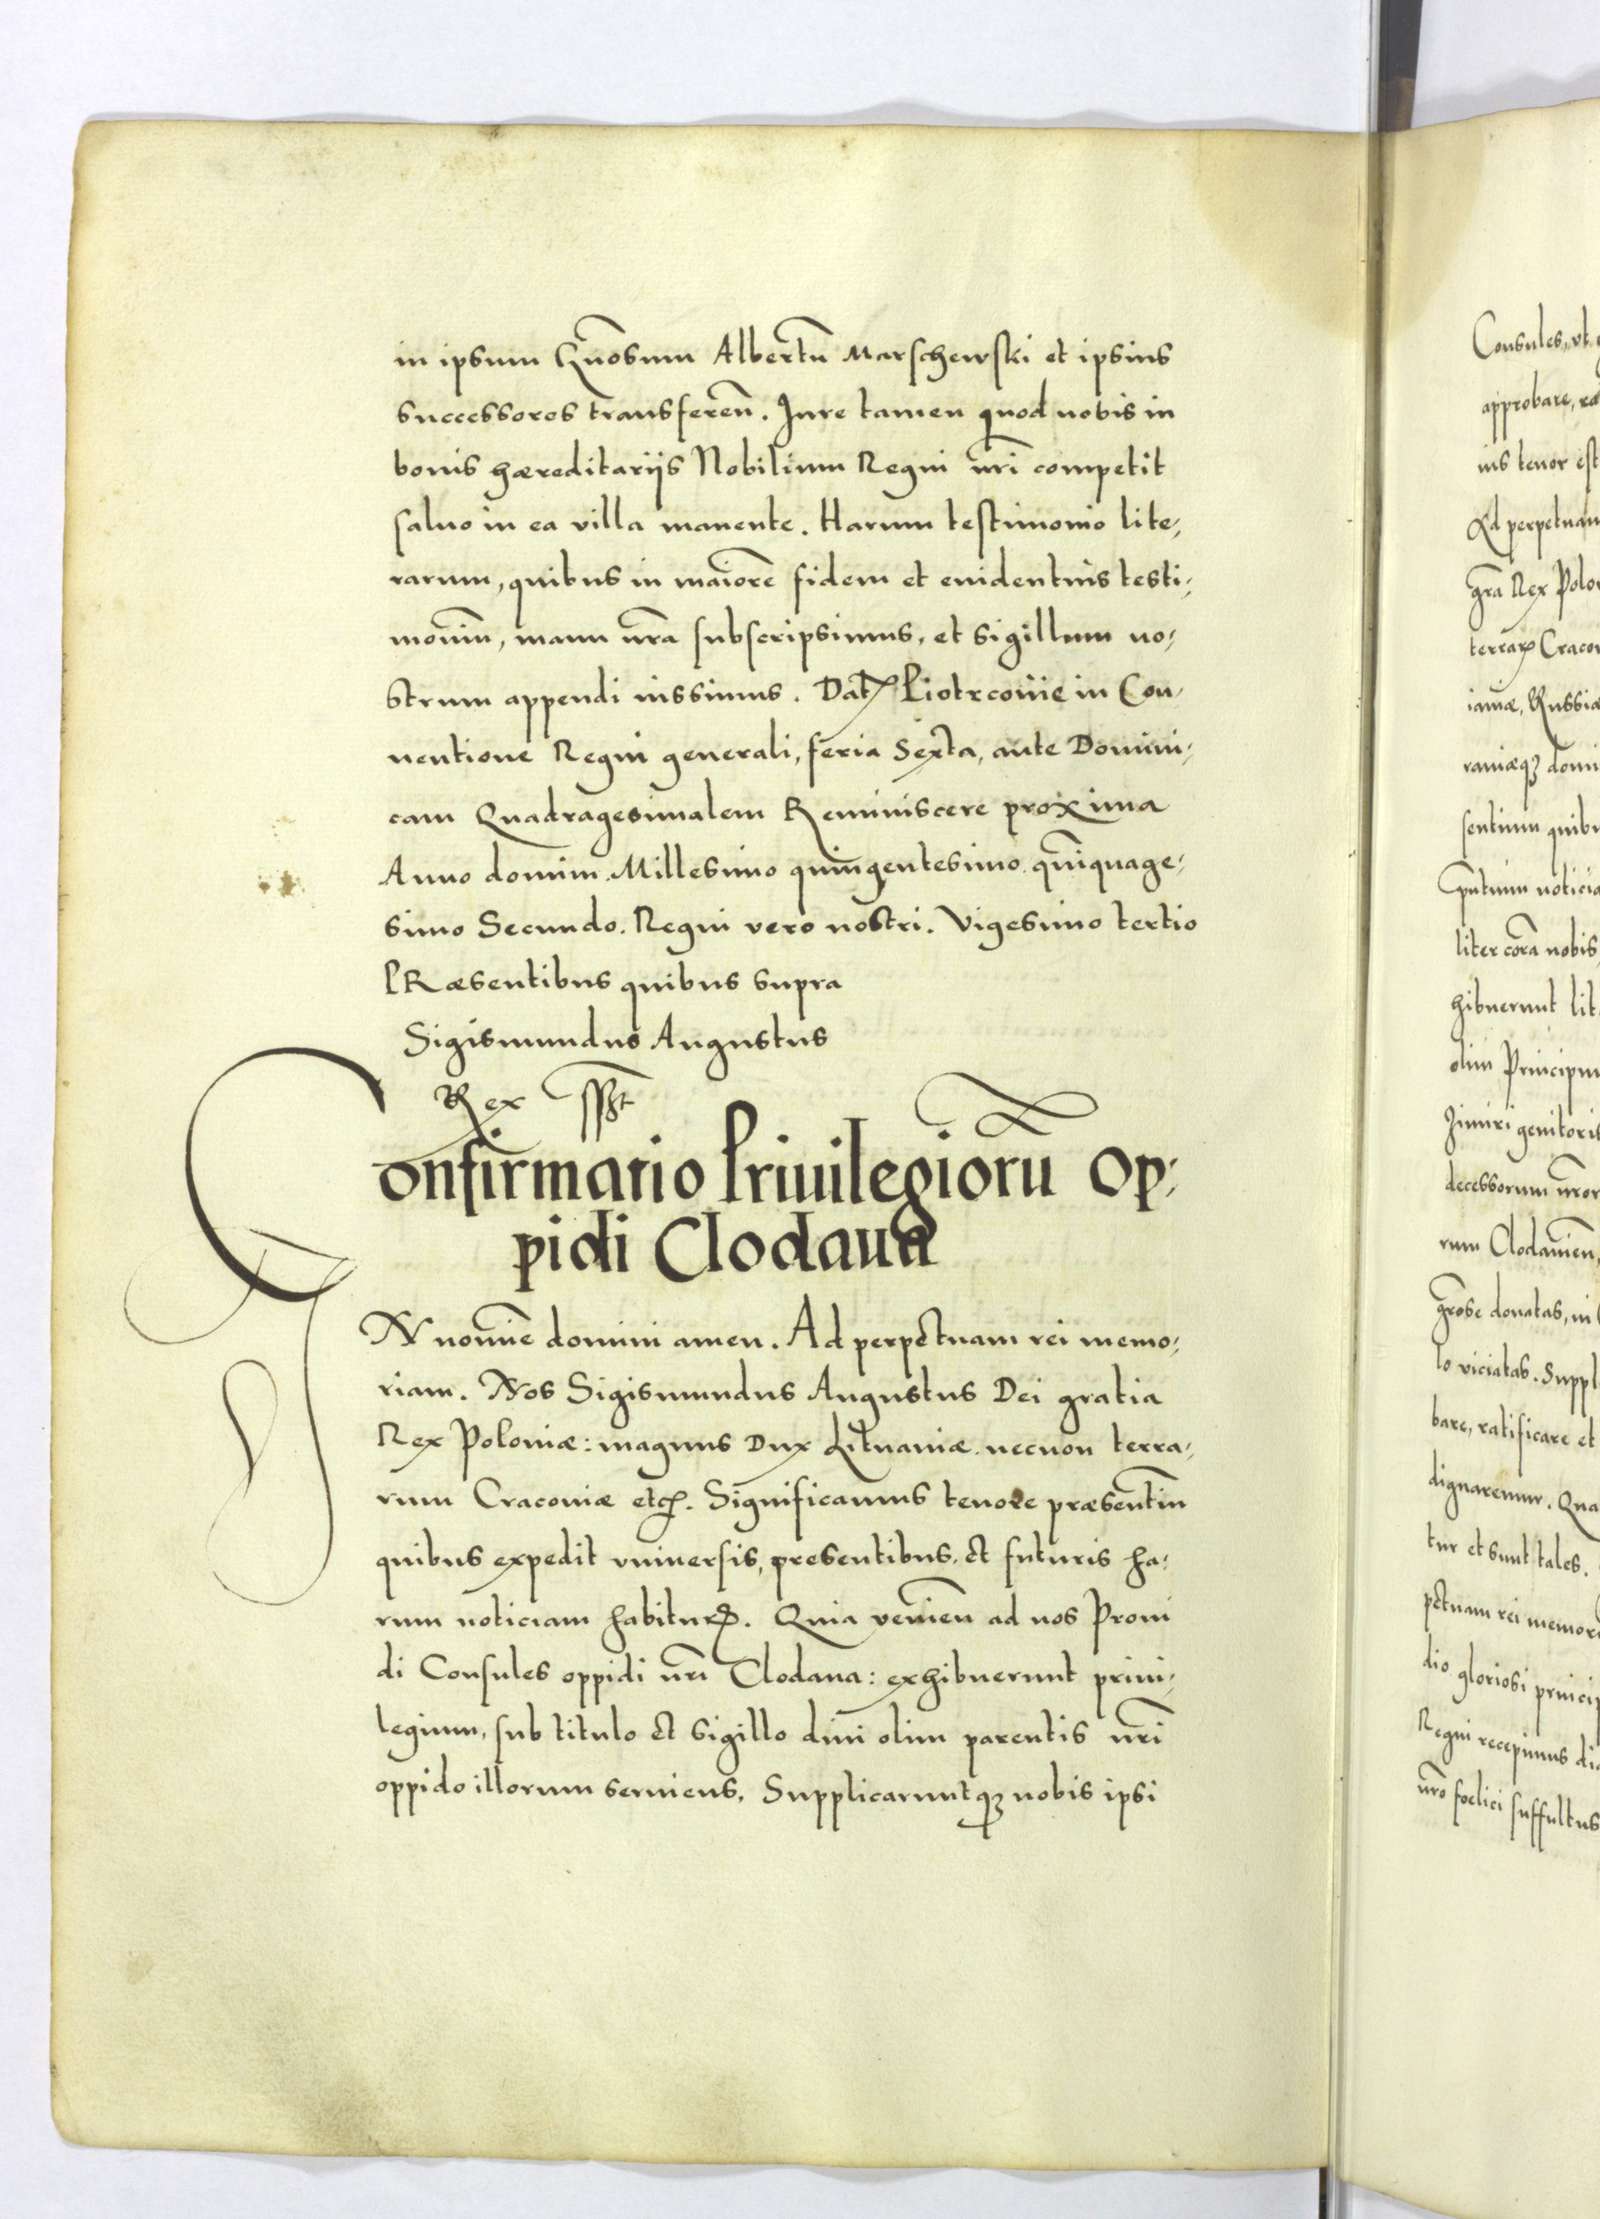 in ipsum Gn̄osum Albertū Marschewski et ipsius
successores transferen̄. Iure tamen quod nobis in
bonis hæreditarijs Nobilium Regni nr̄i competit
saluo in ea villa manente. Harum testimonio lite,
rarum, quibus in maiorē fidem et euidentius testi,
moniū, manu nr̄a subscripsimus, et sigillum no,
strum appendi iussimus. Datꝭ Piotrcouie in Con,
uentione Regni generali, feria Sexta, ante Domini,
cam Quadragesimalem Reminiscere proxima
Anno domini Millesimo quingentesimo quīquage,
simo Secundo. Regni vero nostri. Vigesimo tertio
PRæsentibus quibus supra
Sigismundus Augustus
Rex sspt
Confirmatio Priuilegiorū Op,
pidi Clodaua
IN nomīe domini amen. Ad perpetuam rei memo,
riam. Nos Sigismundus Augustus Dei gratia
Rex Poloniæ: magnus Dux Lituaniæ necnon terra,
rum Cracouiæ etcꝭ. Significamus tenore præsentiū
quibus expedit vniuersis, presentibus, et futuris ha,
rum noticiam habiturꝭ. Quia venien̄ ad nos Proui
di Consules oppidi nr̄i Clodaua: exhibuerunt priui,
legium, sub titulo et sigillo diui olim parentis nr̄i
oppido illorum seruiens, Supplicaruntqꝫ nobis ipsi
Consules, vt
approbare, ra
ius tenor est
Ad perpetuam
gr̄a Rex Polo
terrarꝭ Craco
iauiæ, Russiæ
raniæqꝫ domi
sentium quibu
noticia
liter corā nobis
hibuerunt lit
olim Principu
zimiri genitoris
decessorum nr̄or
rum Clodauien̄,
donatas, in
lo viciatas. Suppl
bare, ratificare et
dignaremur. Qua
tur et sunt tales.
petuam rei memori
dio gloriosi princip
Regni recepimus
nr̄o foelici suffultus